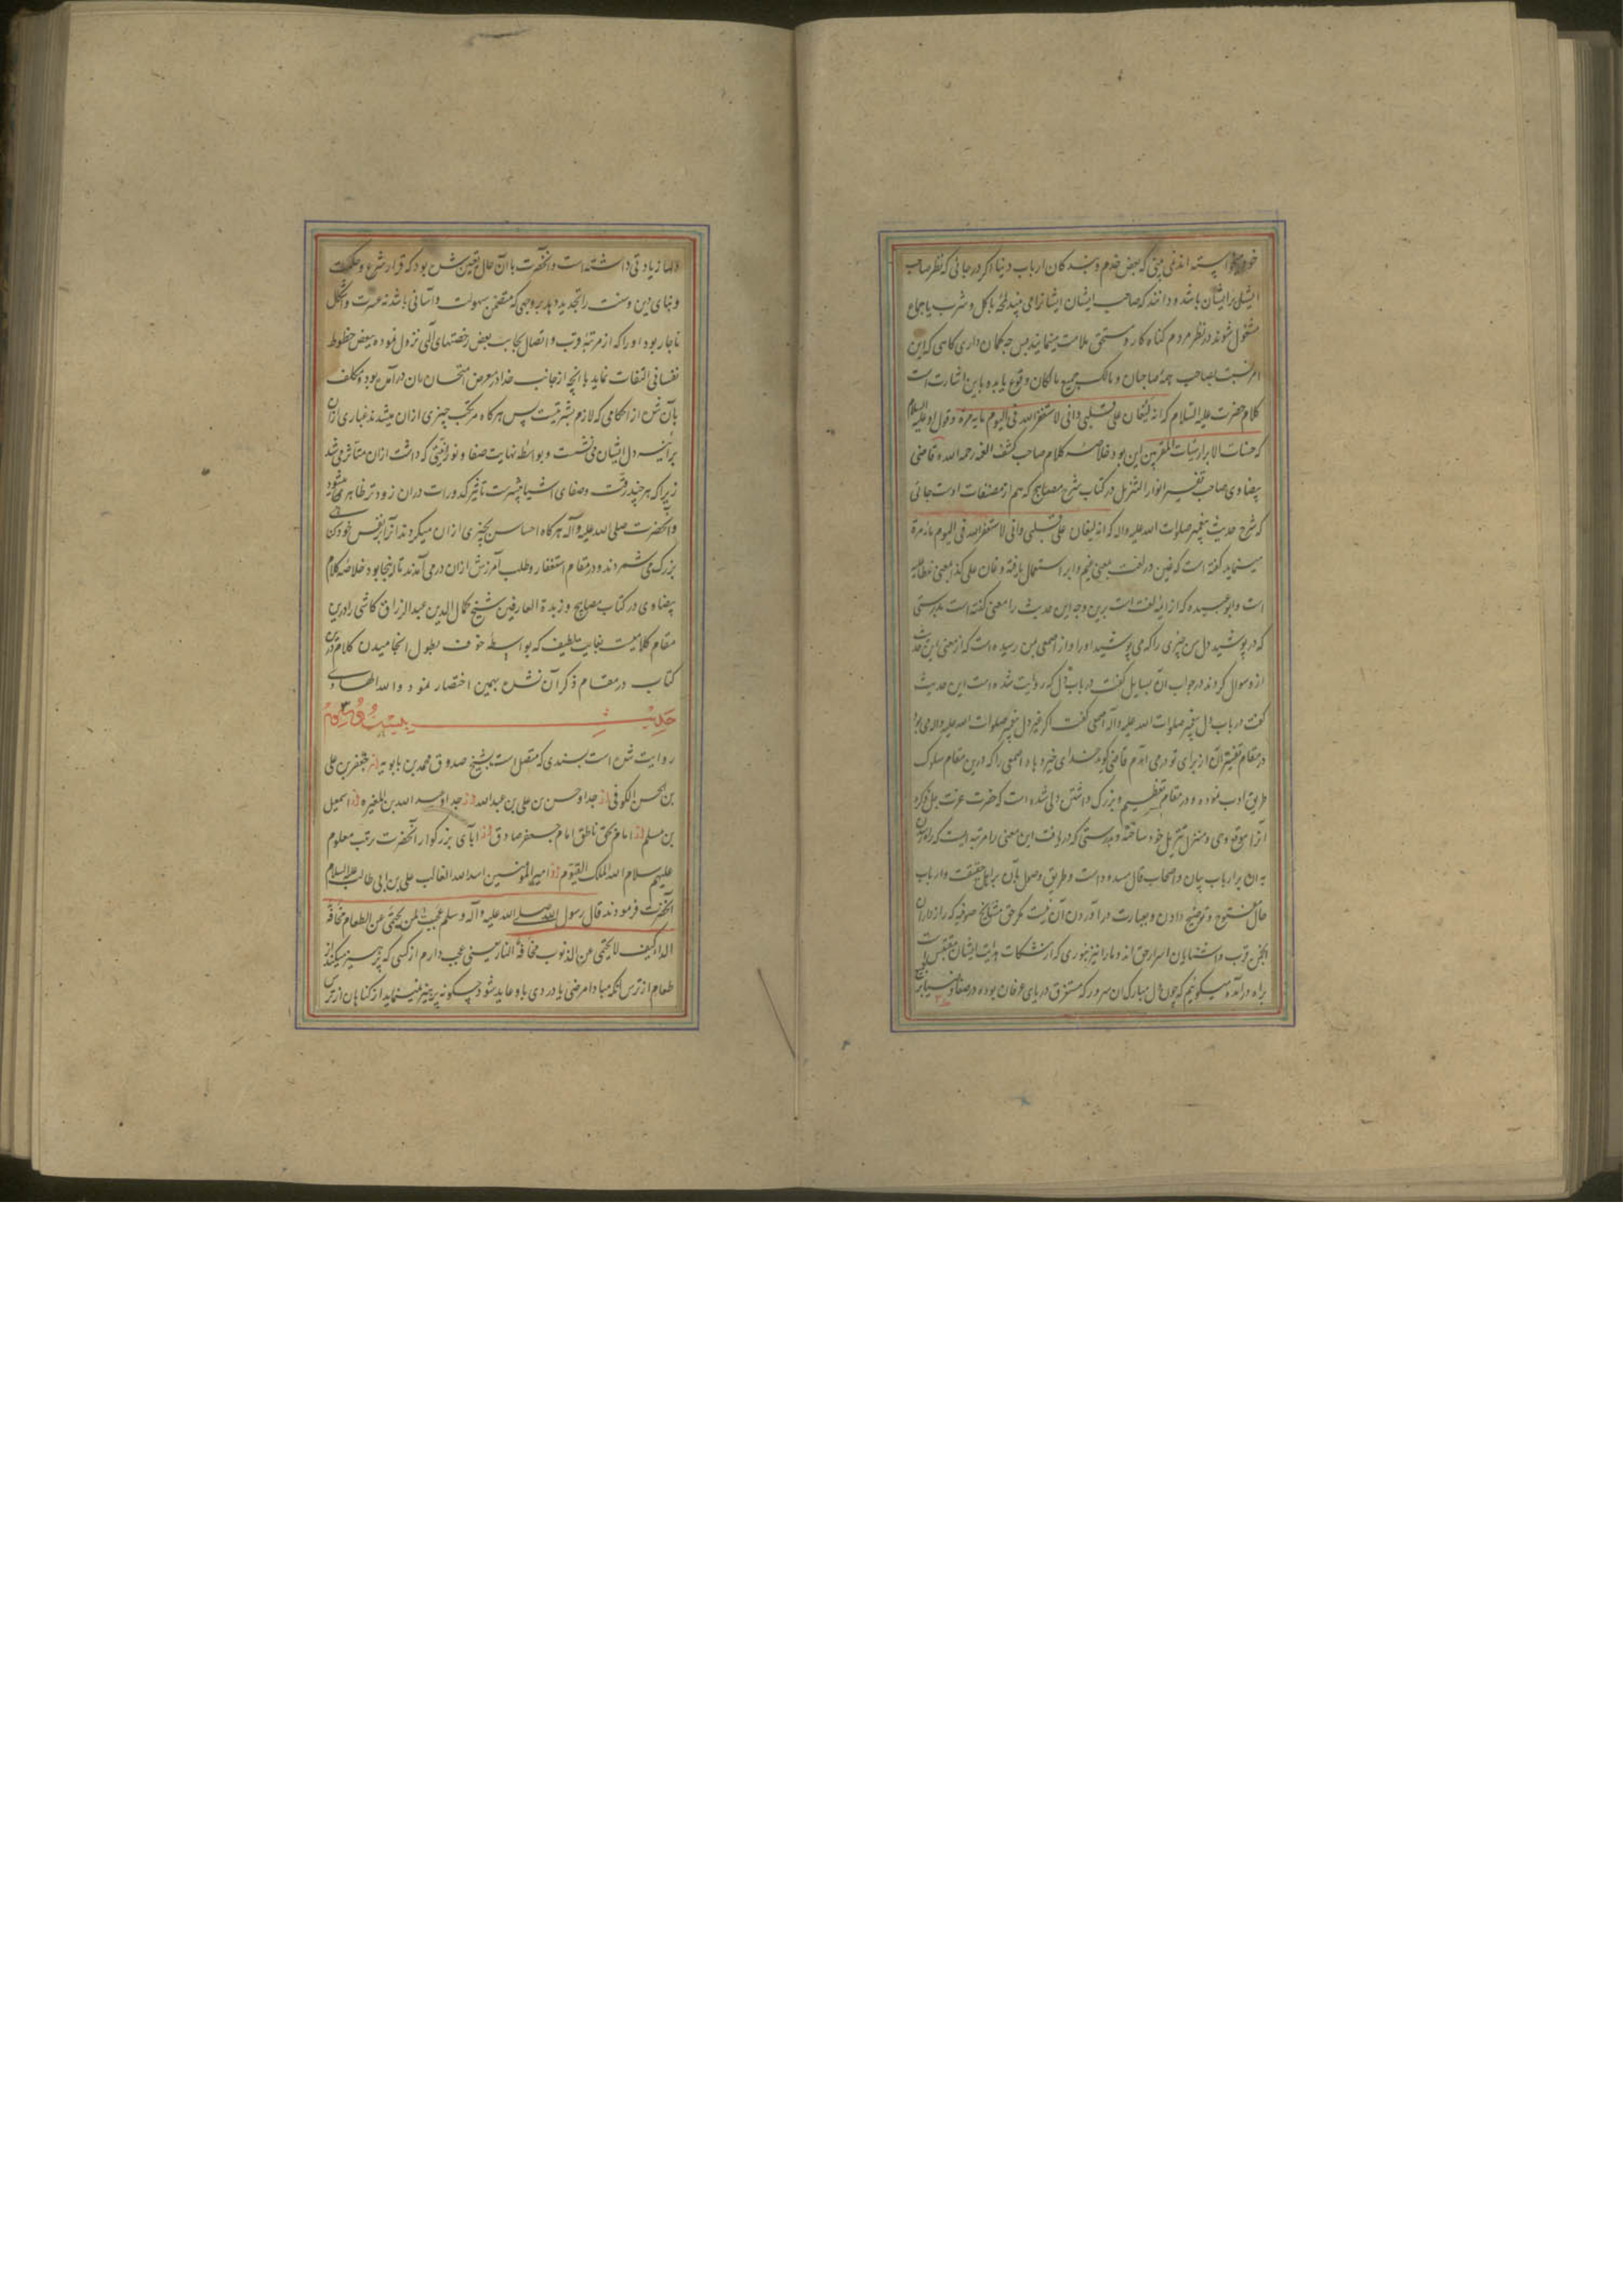 اند نمی بینی که بعض خدم و بندکان ارباب دنیا اکر در جائی که نظر صاحب
ایشان برایشان باشد و دانند که صاحب ایشان ایشانرا می بیند لمحۀ باکل و شرب یا جماع
مشغول شوند در نظر مردم کناه کار و مستحق ملامت مینمایند پس چه کمان داری کاهی که این
امر نسبت بصاحب همۀ صاحبان و مالک جمیع مالکان وقوع یابد و باین اشارت است
کلام حضرت علیه السلام که انه لیغان علی قلبی وانی لاستغفر الله فی الیوم مایه مرة و قول او علیه السلام
که حسنات الابرار سیئات المقربین این بود خلاصۀ کلام صاحب کشف الغمه رحمه الله و قاضی
بیضاوی صاحب تفسیر انوار التنزیل در کتاب شرح مصابیح که هم از مصنفات اوست جائی
که شرح حدیث پیغمبر صلوات الله علیه واله که انه لیغان علی قلبی وانی لاستغفر الله فی الیوم مایه مرة
مینماید کفته است که غین در لغت بمعنی غیم و ابر استعمال یافته و غان علی کذا بمعنی غطا علیه
است و ابو عبیده که از ایمۀ لغت است برین وجه این حدیث را معنی کفته است بدرستی
که در پوشید دل من چیزی را که می پوشید او را و از اصمعی بمن رسیده است که از معنی این حدیث
ازو سوال کردند در جواب آن بسایل کفت در باب دل که روایت شده است این حدیث
کفت در باب دل پیغمبر صلوات الله علیه وآله اصمعی کفت اکر غیر دل پیغمبر صلوات الله علیه واله می بود
در مقام تفسیر آن از برای تو درمی آمدم قاضی کوید خدای خیر دهاد اصمعی را که درین مقام سلوک
طریق ادب نموده و در مقام تعظیم و بزرک داشتن دلی شده است که حضرت عزت جل ذکره
آنرا موقع وحی و منزل تنزیل خود ساخته و بدرستی که دریافت این معنی را مرتبه ایست که راه
به آن بر ارباب بیان و اصحاب قال مسدود است و طریق وصول بآن بر اهل حقیقت و ارباب
حال مفتوح و توضیح دادن و بعبارت در آوردن آن نیست مکر حق مشایخ صوفیه که رازداران
انجمن قرب و آشنایان اسرار حق اند و ما را نیز بنوری که از مشکات هدایت ایشان مقتبس است
براه درآمده میکوئیم که چون دل مبارک آن سرور که مستغرق دریای عرفان بوده در صفا و
دلها زیادتی داشته است و آنحضرت با آن حال تعیین شده بود که قرار شرع و حکمت
و بنای دین و سنت را تجدید دهد بر وجهی که متضمن سهولت و آسانی باشد نه عسرت و اشکال
ناچار بود او را که از مرتبۀ قرب و اتصال بجانب بعض رخصتهای آلهی نزول نموده ببعض حظوظ
نفسانی التفات نماید با انچه از جانب خدا در معرض امتحان بآن درآمده بود و تکلف
بآن شده از احکامی که لازم بشریتست پس هرکاه مرتکب چیزی ازان میشدند غباری ازان
بر آئینۀ دل ایشان می نشست و بواسطۀ نهایت صفا و نورانیتی که داشت ازان متاثر می شد
زیرا که هر چند رقت و صفای اشیا بیشتر است تاثیر کدورات دران زودتر ظاهر میشود
و آنحضرت صلی الله علیه وآله هرکاه احساس بچیزی ازان میکردند آنرا بر نفس خود کناهی
بزرک می شمردند و در مقام استغفار و طلب آمرزش ازان درمی آمدند تا اینجا بود خلاصۀ کلام
بیضاوی در کتاب مصابیح و زبدة العارفین شیخ کمال الدین عبدالرزاق کاشی را درین
مقام کلامیست بغایت لطیف که بواسطۀ خوف بطول انجامیدن کلام درین
کتاب در مقام ذکر آن نشده بهمین اختصار نمود والله الهادی
حدیث بیست و سوم
روایت شده است بسندی که متصل است بشیخ صدوق محمد بن بابویه از جعفر بن علی
بن الحسن الکوفی از جد او حسن بن علی بن عبدالله از جد او عبدالله بن المغیره از اسمعیل
بن مسلم از امام بحق ناطق امام جعفر صادق از آبای بزرکوار آنحضرت بترتب معلوم
علیهم سلام الله الملک القیوم از امیر المؤمنین اسد الله الغالب علی بن ابی طالب علیه السلام
آنحضرت فرمودند قال رسول الله صلی الله علیه وآله وسلم عجبت لمن یحتمی عن الطعام مخافة
الداء کیف لا یحتمی عن الذنوب مخافة النار یعنی عجب دارم از کسی که پرهیز میکند از
طعام از ترس آنکه مبادا مرضی یا دردی باو عاید شود چکونه پرهیز نمینماید از کناهان از ترس